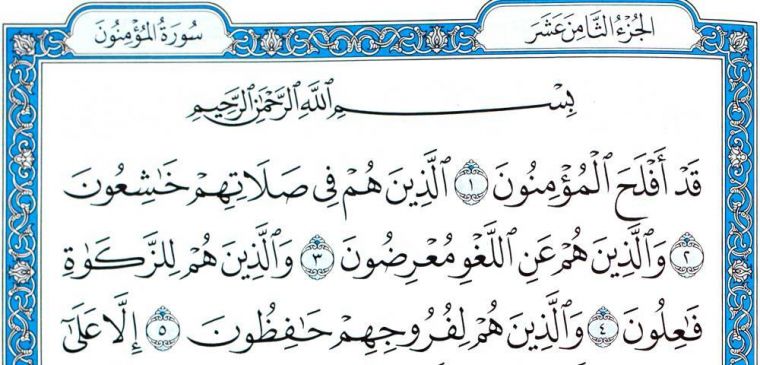 الجُزْءُ الثَّامِنَ عَشَرَ
سُورَةُ المُؤْمِنُونَ
بِسْمِ ٱللَّهِ ٱلرَّحْمَٰنِ ٱلرَّحِيمِ
قَدْ أَفْلَحَ ٱلْمُؤْمِنُونَ ١ ٱلَّذِينَ هُمْ فِى صَلَاتِهِمْ خَٰشِعُونَ
٢ وَٱلَّذِينَ هُمْ عَنِ ٱللَّغْوِ مُعْرِضُونَ ٣ وَٱلَّذِينَ هُمْ لِلزَّكَوٰةِ
فَٰعِلُونَ ٤ وَٱلَّذِينَ هُمْ لِفُرُوجِهِمْ حَٰفِظُونَ ٥ إِلَّا عَلَىٰٓ